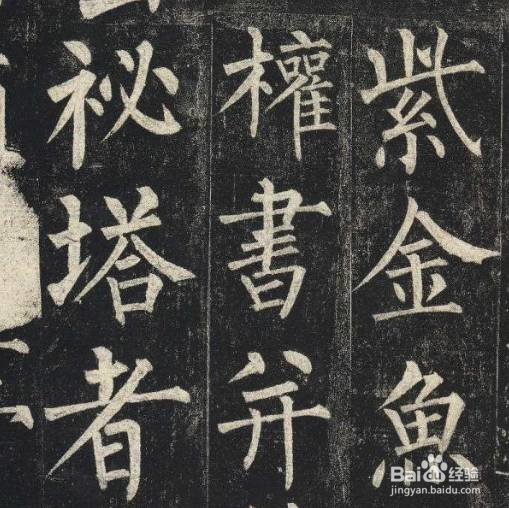 紫金魚
權書并
祕塔者
Baidu经验
jingyan.baidu.com